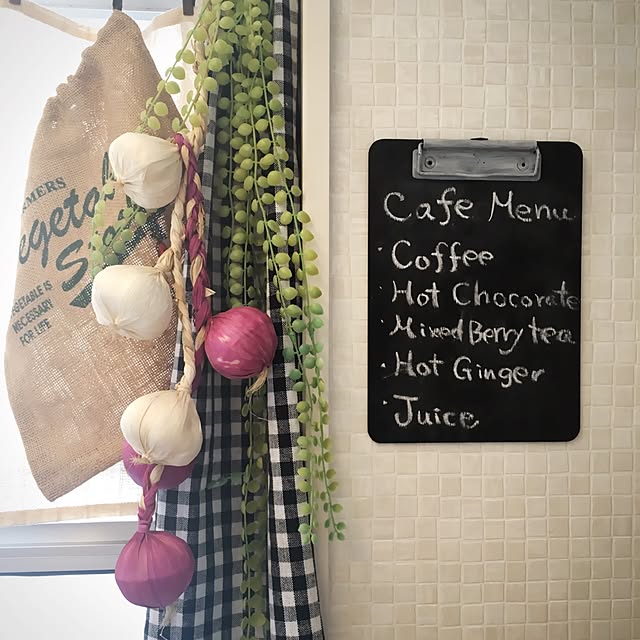 FARMERS
Vegetable
VEGETABLE IS
NECESSARY
FOR LIFE
Cafe Menu
· Coffee
· Hot Chocorate
· Mixed Berry tea
· Hot Ginger
· Juice